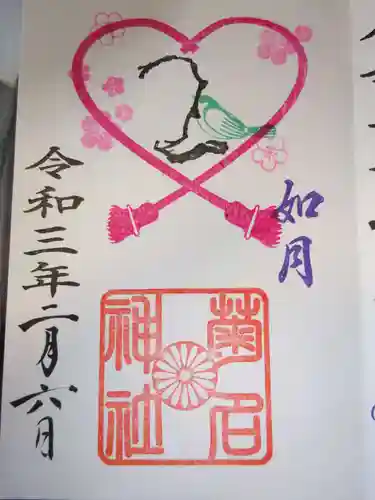 如月
菊名
神社
令和三年二月六日